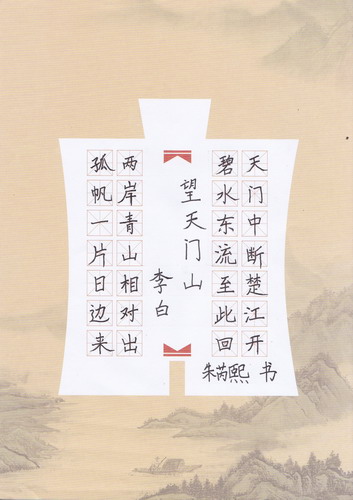 天门中断楚江开
碧水东流至此回
望天门山
李白
两岸青山相对出
孤帆一片日边来
朱芮熙 书